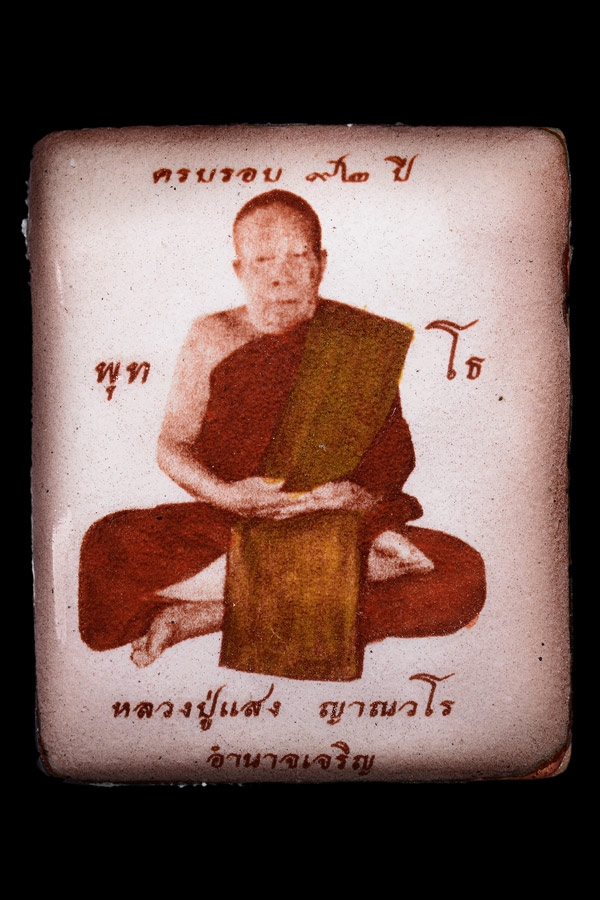 ครบรอบ ๙๒ ปี
พุท โธ
หลวงปู่แสง ญาณวโร
อำนาจเจริญ